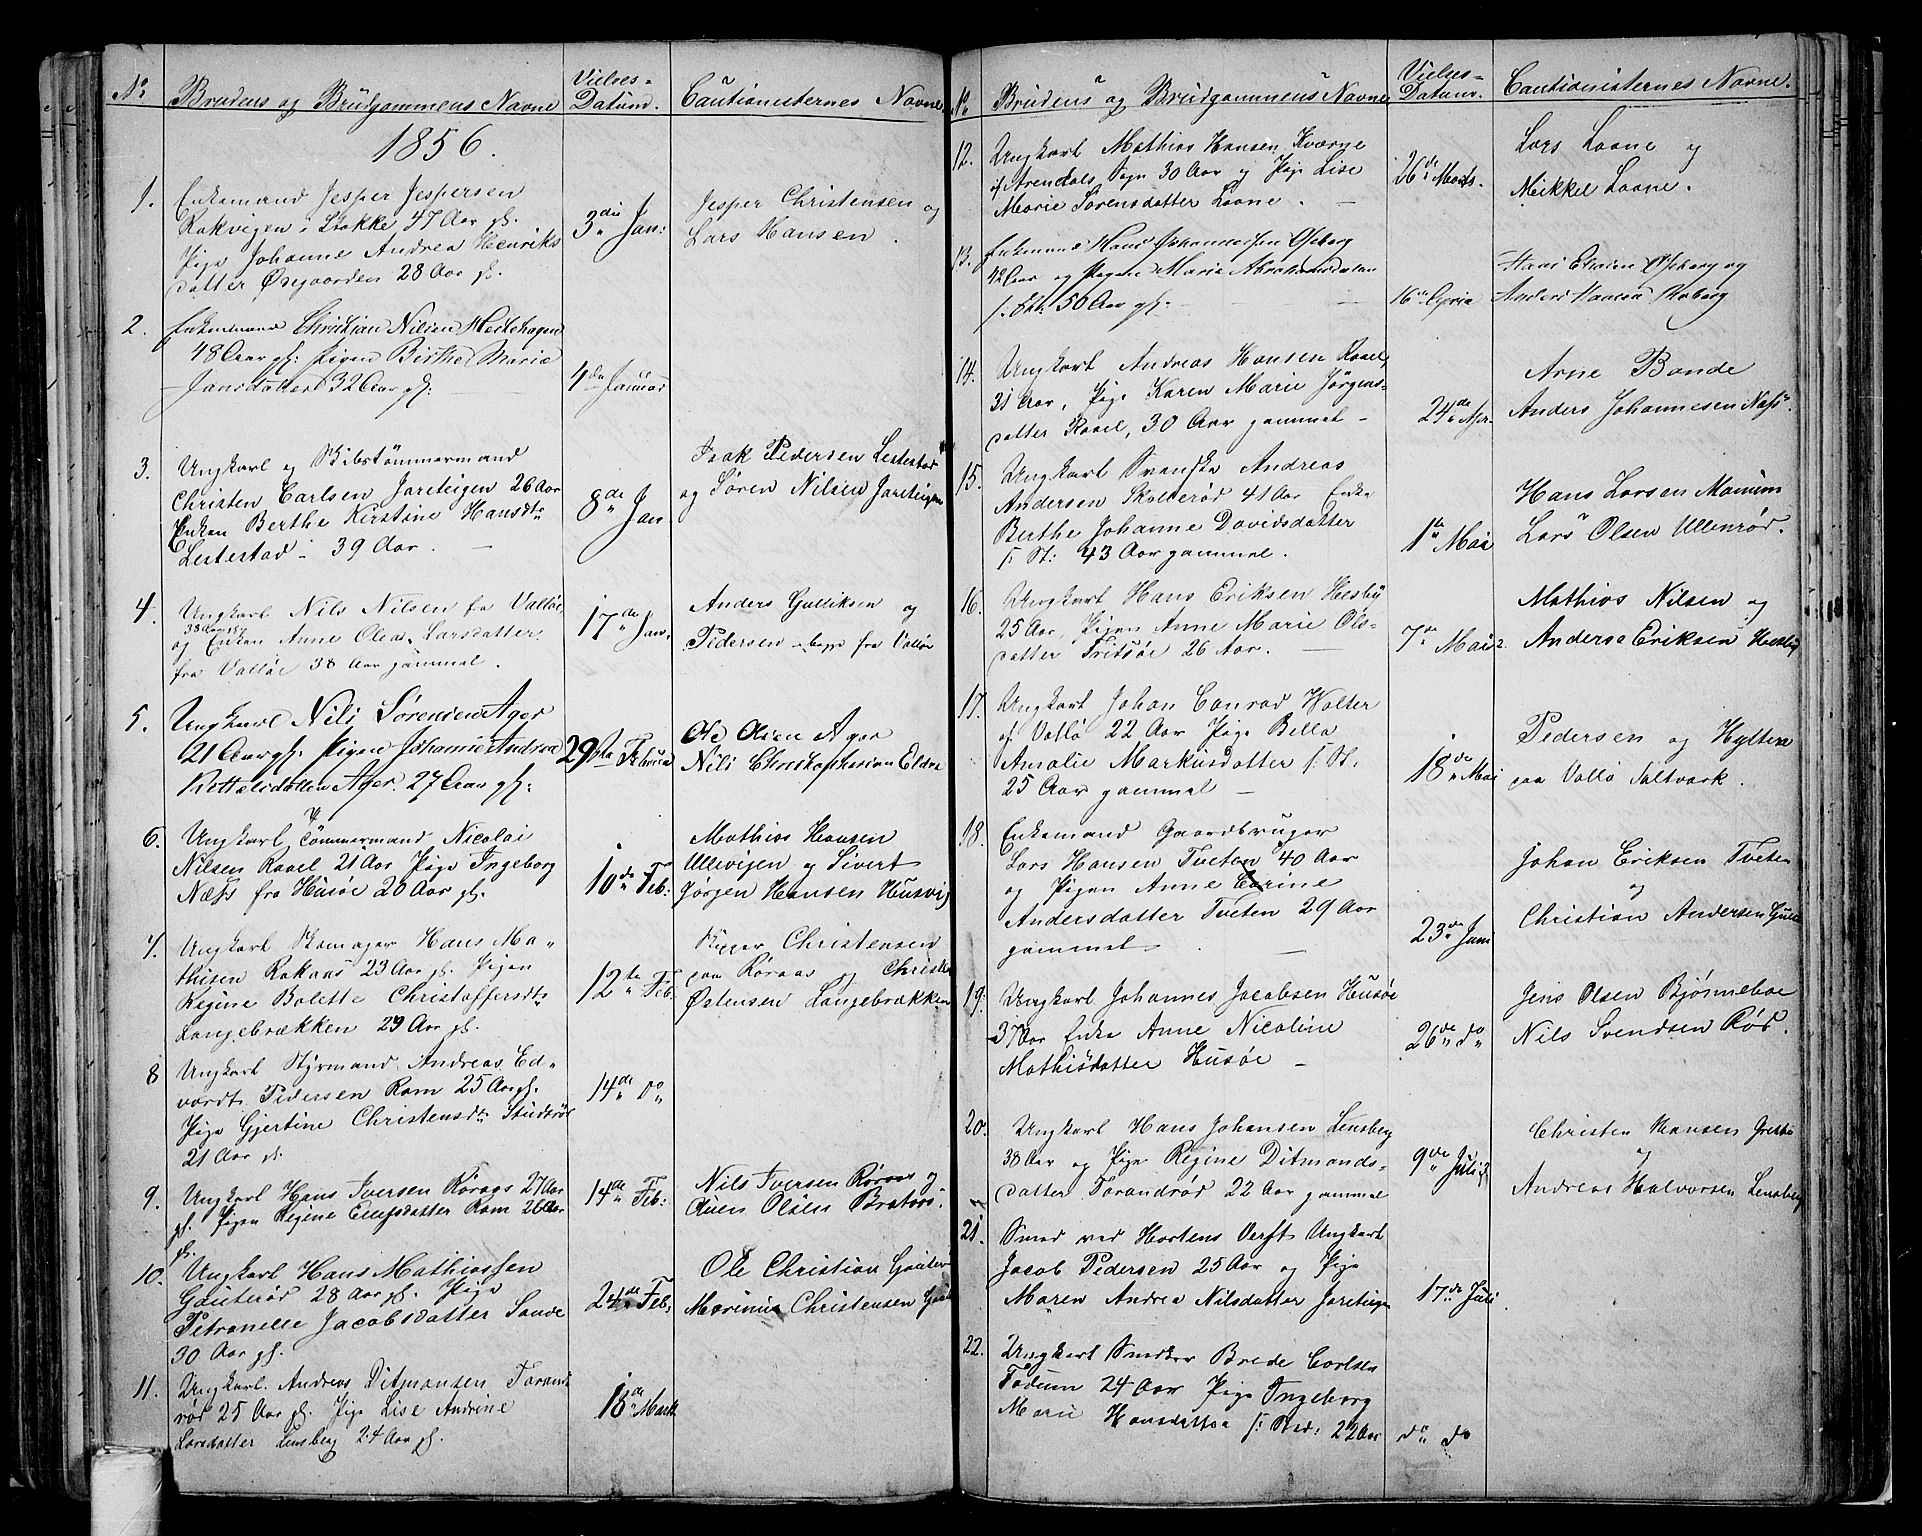 No
Brudens og Brudgommens Navne
Vielses-
Datum.
Cautionisternes Navne
1856.
1. Enkemand Jesper Jespersen
Rakvigen i Stokke, 47 Aar gl.
Pige Johanne Andrea Henriks
datter Øregaarden 28 Aar gl.
3die Jan:
Jesper Christensen og
Lars Hansen.
2. Enkemand Christian Nilsen
48 Aar gl: Pigen Birthe Marie
Jansdatter 32 Aar gl:
4de Januar
3. Ungkarl og Bibstømmermand
Christen Carlsen Jareteigen 26 Aar
Enken Berthe Kirstine Hansdtr
Lestestad - 39 Aar.
8de Jan
Isak Pedersen Lestestad
og Søren Nilsen Jareteigen
4. Ungkarl Nils Nilsen fra Valløe
38 Aar gl
og Enken Anne Olea Larsdatter
fra Valløe 38 Aar gammel.
17de Jan.
Anders Gulliksen og
Pedersen - begge fra Valløe
5. Ungkarl Nils Sørensen Ager
21 Aar gl: Pigen Johanne Andrea
Kettelsdatter Ager. 27 Aar gl:
29de Februar
Ole Olsen Ager
Nils Christophersen Eldre
6. Ungkarl Tømmermand Nicolai
Nilsen Rael 21 Aar Pige Ingeborg
Næss fra Husøe 20 Aar gl.
10de Feb:
Mathias Hansen
Ullevigen og Sivert
Jørgen Hansen Husvig
7. Ungkarl Skomager Hans Ma-
thisen Rakaas 23 Aar gl. Pigen
Regine Bolette Christoffersdtr
Langebrækken 29 Aar gl.
12te Feb.
Skipper Christensen
paa Røraas og Christen
Østensen Langebrækken
8 Ungkarl Styrmand Andreas Ed-
vardt Pedersen Ram 25 Aar gl.
Pige Gjertine Christensdtr Studsrød
21 Aar gl.
14de do
9. Ungkarl Hans Iversen Røraas 27 Aar
gl. Pigen Regine Ellefsdatter Ram 26 Aar
gl.
14de Feb:
Nils Iversen Røraas og
Auen Olsen Brataas.
10. Ungkarl Hans Mathiassen
Gauterød 28 Aar gl. Pige
Petronelle Jacobsdatter Sande
30 Aar gl.
24de Feb.
Ole Christian Gauter
Marinus Christensen
11. Ungkarl. Andreas Ditmansen Torand
rød 25 Aar gl. Pige Lise Andrine
Larsdatter Lensberg 24 Aar gl.
18de Marts
No
Brudens og Brudgommens Navne
Vielses-
Datum.
Cautionisternes Navne.
12. Ungkarl Mathias Hansen Kværne
af Arendals Sogn 30 Aar og Pige Lise
Marie Sørensdatter Loane.
26de Marts.
Lars Loane og
Mikkel Loane.
13. Enkemand Hans Johannessen Oseberg
42 Aar og Pigen Maria Abrahamsdatter
f. St: 50 Aar gl.
16de April
Oseberg og
Anders Hansen
14. Ungkarl Andreas Hansen Rael,
31 Aar, Pige Karen Marie Jørgens-
datter Rael, 30 Aar gammel -
24de Apr.
Arne Bonde
Anders Johannesen Næss.
15. Ungkarl Svenske Andreas
Andersen Skallerød 41 Aar Enke
Berthe Johanne Davidsdatter
f: St: 43 Aar gammel.
1ste Mai
Hans Larsen Manum
Lars Olsen Ullenrød.
16. Ungkarl Hans Eriksen Hesby
25 Aar, Pigen Anne Marie Ols-
datter Fritsøe 26 Aar.
7de Mai
Mathias Nilsen og
Anders Eriksen Hesby
17. Ungkarl Johan Conrad Holter
af Vallø 22 Aar Pige Bella
Amalie Markusdatter f. St.
25 Aar gammel -
18de Mai
Pedersen og Hylten
paa Vallø Saltværk.
18. Enkemand Gaardbruger
Lars Hansen Tveten 40 Aar
og Pigen Anne Carine
Andersdatter Tveten 29 Aar
gammel -
23de Juni
Johan Eriksen Tveten
og
Christian Andersen
19. Ungkarl Johannes Jacobsen Husøe
37 Aar Enke Anne Nicoline
Mathisdatter Husøe -
26de do
Jens Olsen Bjørneboe
Nils Svendsen Rør.
20. Ungkarl Hans Johansen Lensberg
38 Aar og Pige Regine Ditmands-
datter Torandrød 22 Aar gammel
9de Juli
Christen Hansen
og
Andreas Halvorsen Lensberg
21. Smed ved Hortens Verft Ungkarl
Jacob Pedersen 25 Aar og Pige
Maren Andrea Nilsdatter Jareteigen
17de Juli.
22. Ungkarl Snedker Brede Carlsen
Fodum 24 Aar Pige Ingeborg
Marie Hansdatter f: Sted: 22 Aar
do do